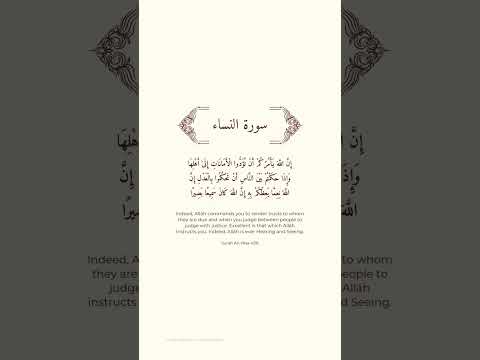 سورة النساء
إِنَّ اللَّهَ يَأْمُرُكُمْ أَنْ تُؤَدُّوا الْأَمَانَاتِ إِلَىٰ أَهْلِهَا
وَإِذَا حَكَمْتُمْ بَيْنَ النَّاسِ أَنْ تَحْكُمُوا بِالْعَدْلِ إِنَّ
اللَّهَ نِعِمَّا يَعِظُكُمْ بِهِ إِنَّ اللَّهَ كَانَ سَمِيعًا بَصِيرًا
Indeed, Allāh commands you to render trusts to whom
they are due and when you judge between people to
judge with justice. Excellent is that which Allāh
instructs you. Indeed, Allāh is ever Hearing and Seeing.